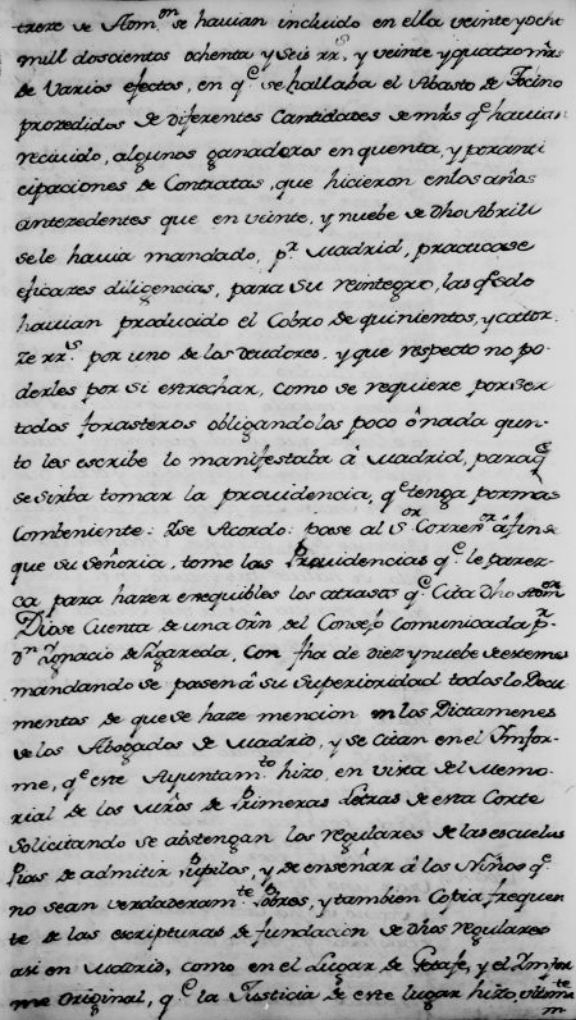 treze de Nom.on se hauian incluido en ella veinte y ocho
mill doscientos ochenta y seis rr.s, y veinte y quatro mrs
de Varios efectos, en q.e se hallaba el Abasto de Tocino
prozedidos de diferentes Cantidades de mrs q.e hauian
reciuido, algunos ganaderos en quenta, y por anti
cipaciones de Contratas, que hicieron en los años
antezedentes que en veinte, y nuebe de dho Abrill
se le hauia mandado, p.r Madrid, practicase
eficazes diligencias, para su reintegro, las q.e solo
hauian producido el Cobro de quinientos, y cator.
ze rr.s por uno de los deudores, y que respecto no po-
derles por si estrechar, como se requiere por ser
todos forasteros obligandolos poco ô nada quan-
to les escribe lo manifestaba â Madrid, para q.e
se sirba tomar la prouidencia, q.e tenga por mas
combeniente: Y se Acordo: pase al S.or Corren.or â fin de
que su Señoria, tome las Prouidencias q.e le parez-
ca para hazer exequibles los atrasos q.e Cita dho
Diose Cuenta de una orn del Consejo Comunicada p.r
D.n Ygnacio de Ygareda, con fha de diez y nuebe de este mes
mandando se pasen â su Superioridad todos lo Docu
mentos de que se haze mencion en los Dictamenes
de los Abogados de Madrid, y se citan en el Ymfor-
me, q.e este Ayuntam.to hizo, en vista del Memo.
rial de los mrôs de Primeras Letras de esta Corte
Solicitando se abstengan los regulares de las escuelas
Pias de admitir Pupilos, y de enseñar â los Niños q.e
no sean verdaderam.te Pobres, y tambien Copia frequen
te de las escripturas de fundacion de dhos regulares
asi en Madrid, como en el Lugar de Getafe, y el Ymfor
me Original, q.e la Justicia de este lugar hizo, ultimam.te